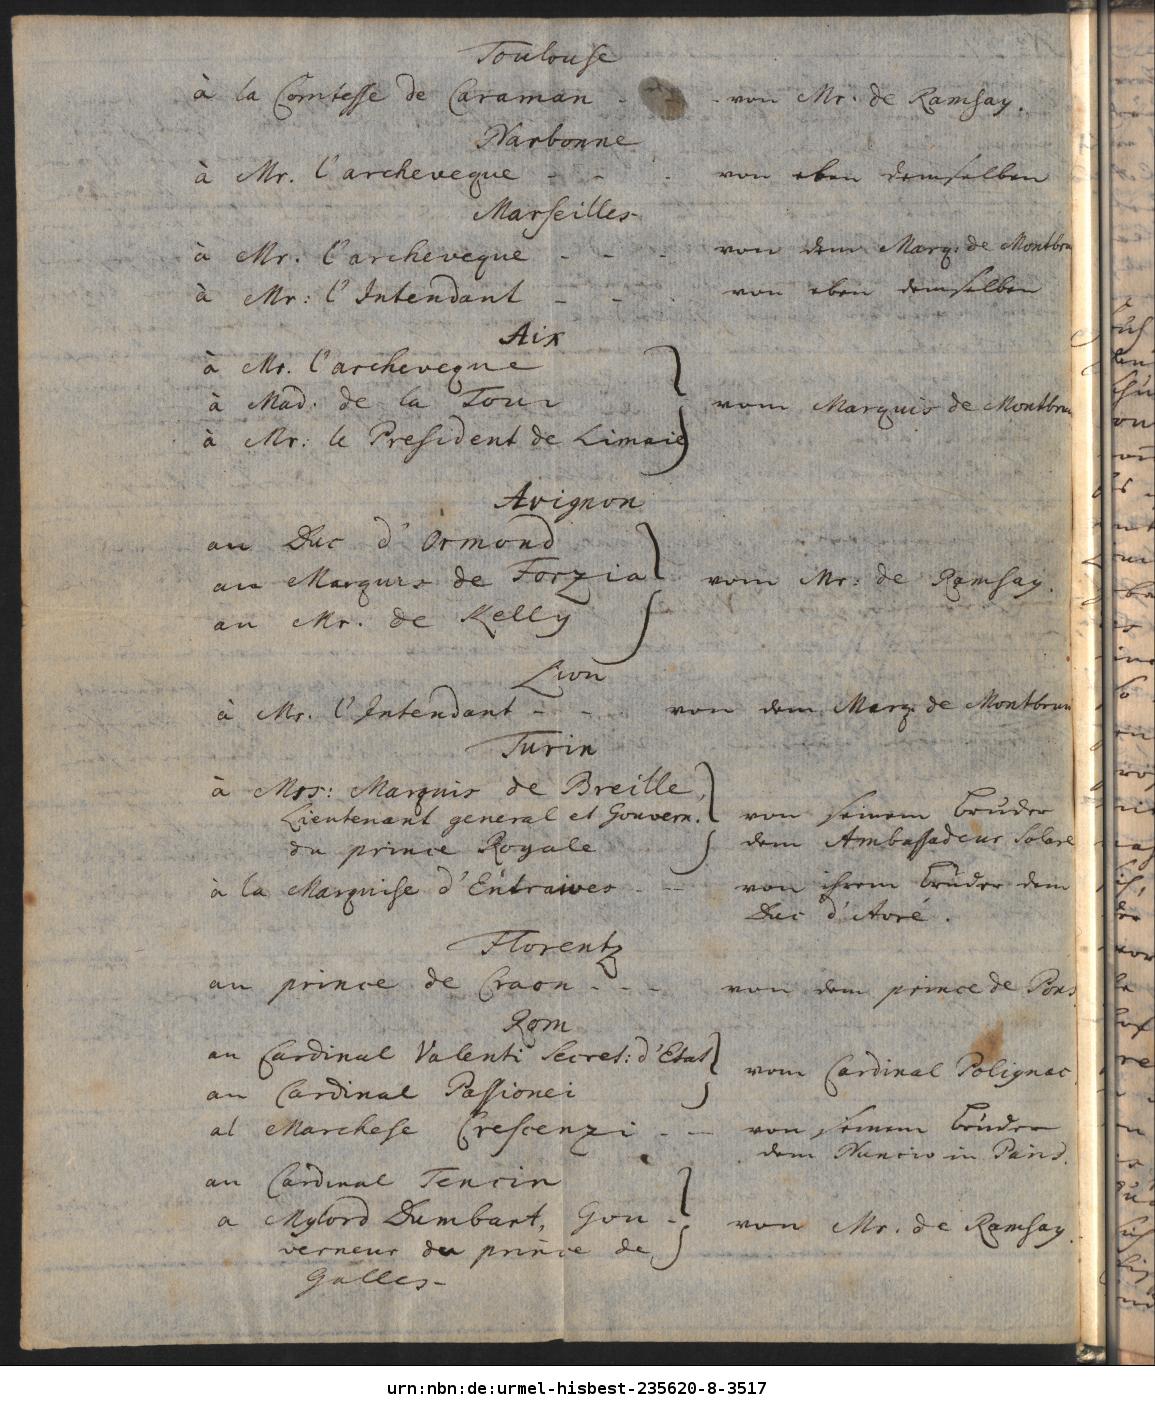 Toulouse
à la Comtesse de Caraman - - - von Mr. de Ramsay.
Narbonne
à Mr. l'archeveque - - - von eben demselben
Marseilles
à Mr. l'archeveque - - - von dem Marq. de Montbru
à Mr: l'Intendant - - - von eben demselben
Aix
à Mr. l'archeveque
à Mad. de la Tour vom Marquis de Montbru
à Mr: le President de Limaie
Avignon
au Duc d'Ormond
au Marquis de Forzia vom Mr: de Ramsay.
au Mr. de Kelly
Lion
à Mr. l'Intendant - - - von dem Marq. de Montbrun
Turin
à Mrs: Marquis de Breille,
Lieutenant general et Gouvern. von seinem bruder
du prince Royale dem Ambassadeur Solare
à la Marquise d'Entraives - - von ihrem bruder dem
Duc d'Avré.
Florentz
au prince de Craon - - - von dem prince de Pons
Rom
au Cardinal Valenti Secret: d'Etat
au Cardinal Passionei vom Cardinal Polignac
al Marchese Crescenzi - - von seinem bruder
dem Nuncio in Paris.
au Cardinal Tencin
a Mylord Dumbart, Gou- von Mr. de Ramsay.
verneur du prince de
Galles-
urn:nbn:de:urmel-hisbest-235620-8-3517